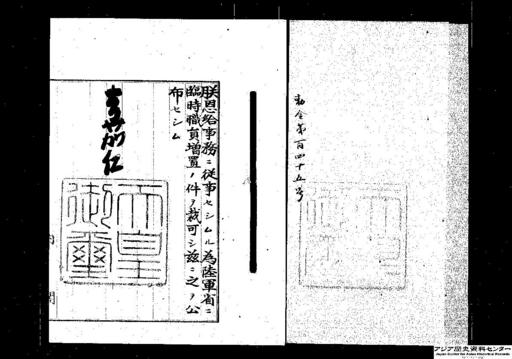 勅令第百四十五号
朕恩給事務ニ従事セシムル為陸軍省ニ
臨時職員増置ノ件ヲ裁可シ茲ニ之ヲ公
布セシム
嘉仁
天皇
御璽
内
閣
アジア歴史資料センター
Japan Center for Asian Historical Records